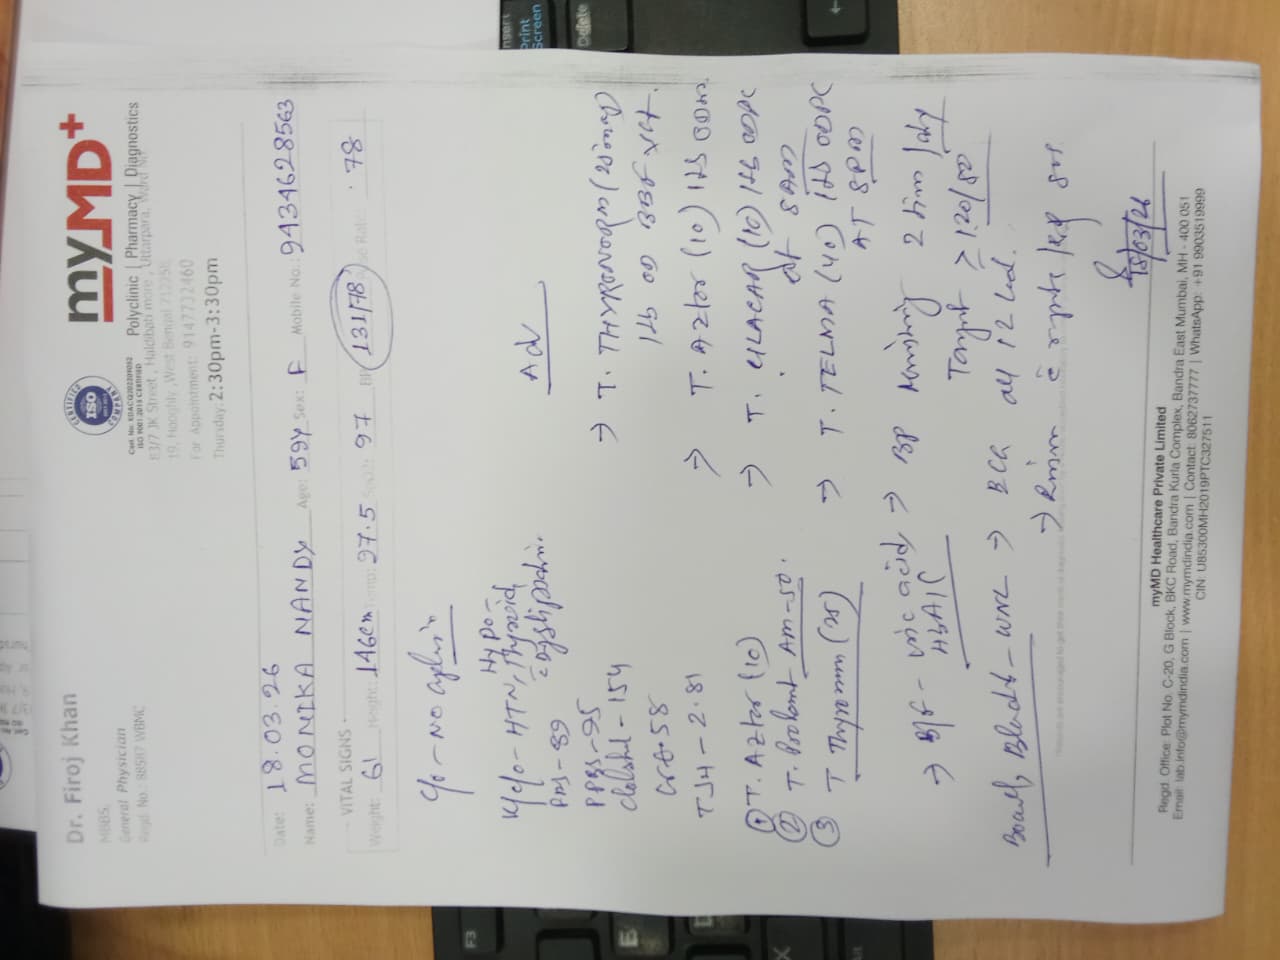 Dr. Firoj Khan
MBBS,
General Physician
Regd. No.: 88587 WBMC
myMD+
Polyclinic | Pharmacy | Diagnostics
CERTIFIED
ISO
COMPANY
ISO 9001:2015 CERTIFIED
83/7 JK Street, Haldibati more, Uttarpara, Ward No
19, Hooghly, West Bengal 712258
For Appointment: 9147732460
Thursday: 2:30pm-3:30pm
Date: 18.03.26
Name: MONIKA NANDY Age: 59Y Sex: F Mobile No.: 9434628563
VITAL SIGNS
Weight: 61 Height: 146cm Temp: 97.5 SpO2: 97 BP: 131/78 Pulse Rate: 78
C/o - No
K/c/o - HTN, Hypo-
thyroid,
- 89
PPBS - 95
- 154
Cre - .58
TSH - 2.81
① T. Aztor (10)
② T. Prolomt AM-50.
③ T (25)
→ B/f - uric acid
HbA1C
Bowel, Bladder - WNL
Ad
→ T. THYRONORM (25mcg)
1tb OD BBF
→ T. Aztor (10) 1tb OD
→ T. CILACAR (10) 1tb OD PC
at 8AM
→ T. TELMA (40) 1tb OD PC
AT 8PM
→ BP 2 time/day
Target ≥ 120/80
→ ECG all 12 Lead.
→
18/03/26
myMD Healthcare Private Limited
Regd. Office: Plot No. C-20, G Block, BKC Road, Bandra Kurla Complex, Bandra East Mumbai, MH - 400 051
Email: lab.info@mymdindia.com | www.mymdindia.com | Contact: 8062737777 | WhatsApp: +91 9903519999
CIN: U85300MH2019PTC327511
Insert
Print
Screen
Delete
F3